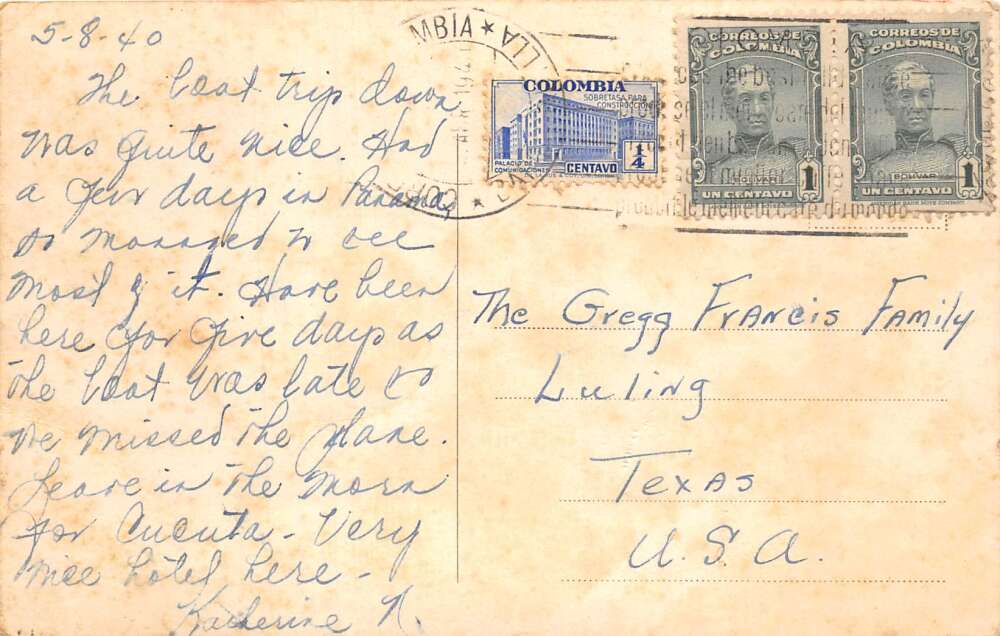 5-8-40
The boat trip down
was quite nice. Had
a few days in Panama,
so managed to see
most of it. Have been
here for five days as
the boat was late so
we missed the plane.
Leave in the morn
for Cucuta - Very
nice hotel here -
Katherine N.
COLOMBIA
SOBRETASA PARA
CONSTRUCCION
PALACIO DE
COMUNICACIONES
1/4
CENTAVO
CORREOS DE
COLOMBIA
BOLIVAR
UN CENTAVO 1
CORREOS DE
COLOMBIA
BOLIVAR
UN CENTAVO 1
MBIA ★ LLA
The Gregg Francis Family
Luling
Texas
U.S.A.